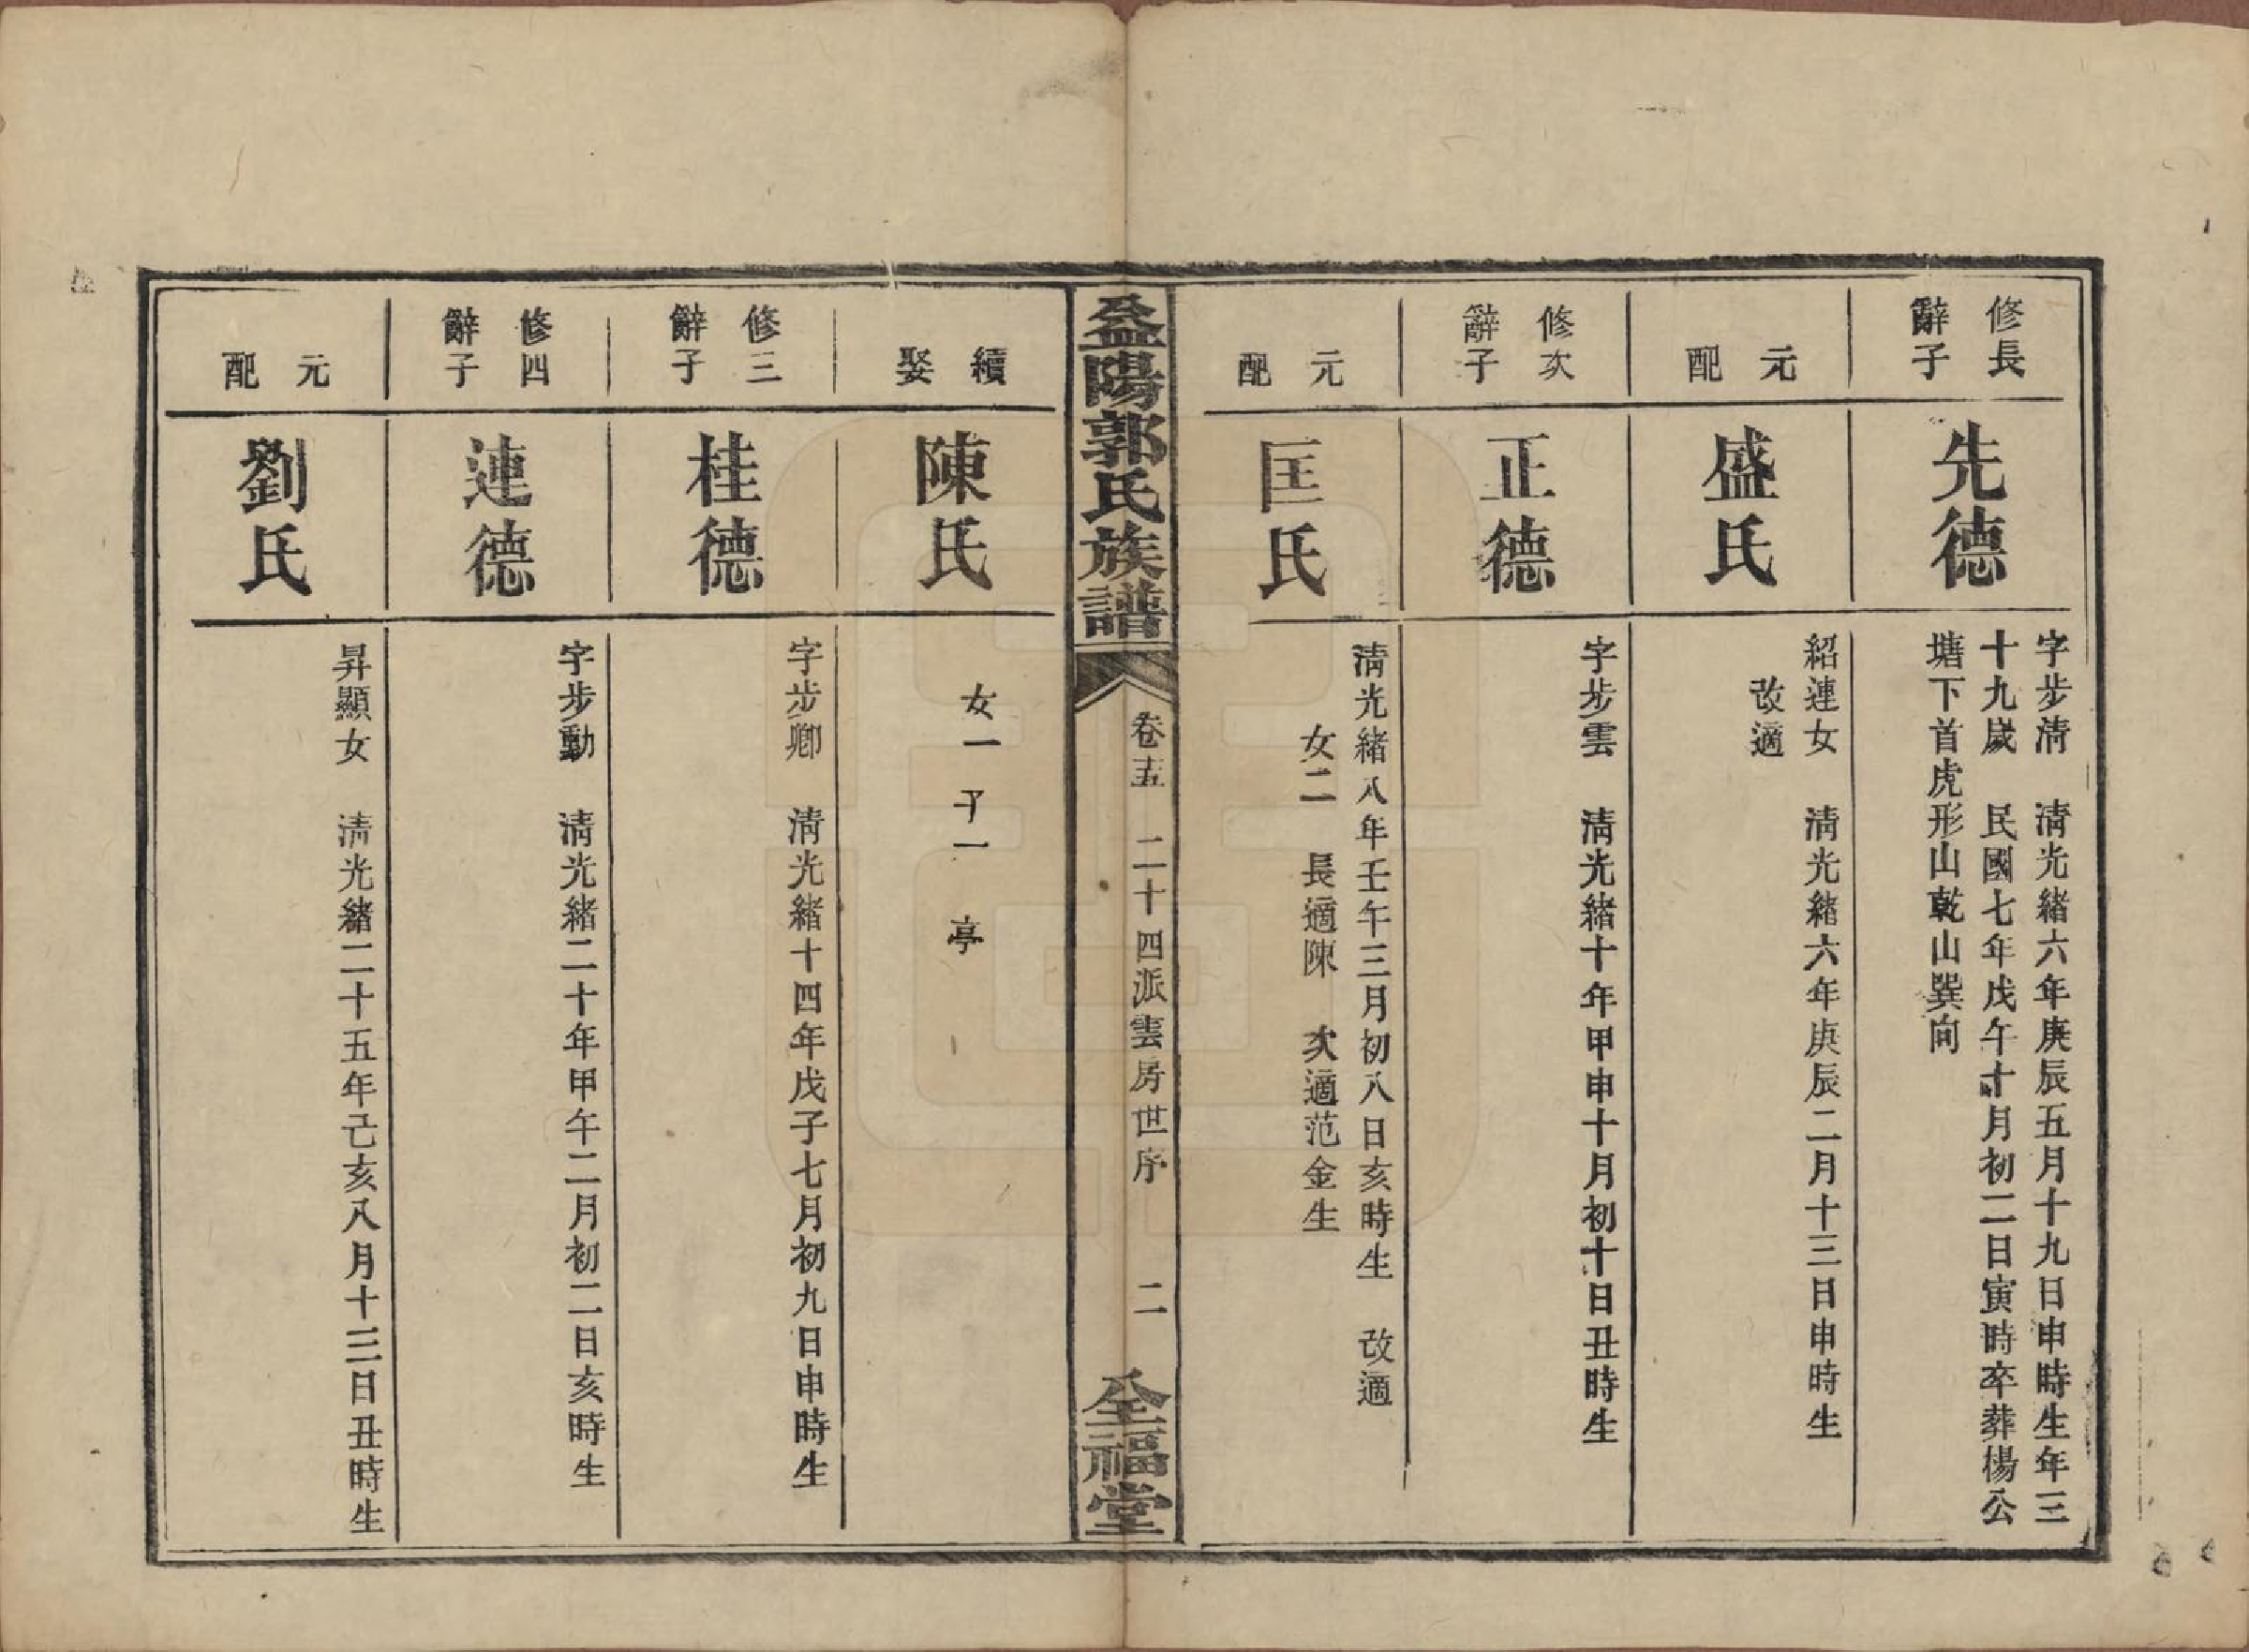 修長
辭子
先德
字步淸　淸光緒六年庚辰五月十九日申時生年三
十九歲　民國七年戊午十月初二日寅時卒葬楊公
塘下首虎形山乾山巽向
元
配
盛氏
紹連女　淸光緒六年庚辰二月十三日申時生
改適
修次
辭子
正德
字步雲　淸光緒十年甲申十月初十日丑時生
元
配
匡氏
淸光緒八年壬午三月初八日亥時生　改適
女二　長適陳　次適范金生
益陽郭氏族譜
卷五　二十四派雲房世序　二
全福堂
續
娶
陳氏
女一　子一　亭
修三
辭子
桂德
字步卿　淸光緒十四年戊子七月初九日申時生
修四
辭子
連德
字步勳　淸光緒二十年甲午二月初二日亥時生
元
配
劉氏
昇顯女　淸光緒二十五年己亥八月十三日丑時生